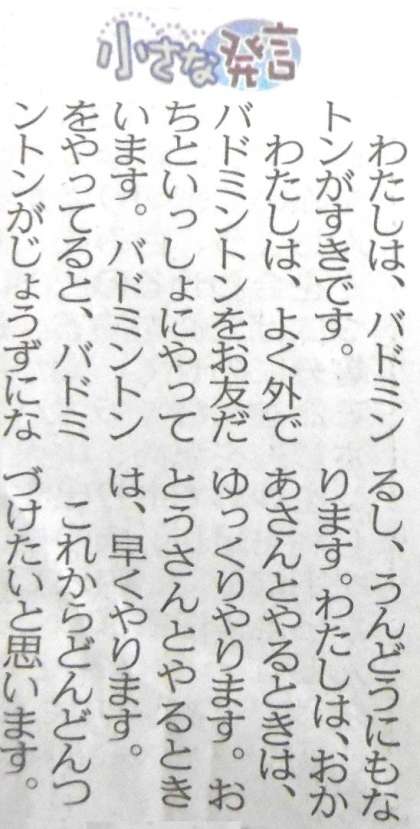 小さな発言
わたしは、バドミン
トンがすきです。
わたしは、よく外で
バドミントンをお友だ
ちといっしょにやって
います。バドミントン
をやってると、バドミ
ントンがじょうずにな
るし、うんどうにもな
ります。わたしは、おか
あさんとやるときは、
ゆっくりやります。お
とうさんとやるとき
は、早くやります。
これからどんどんつ
づけたいと思います。